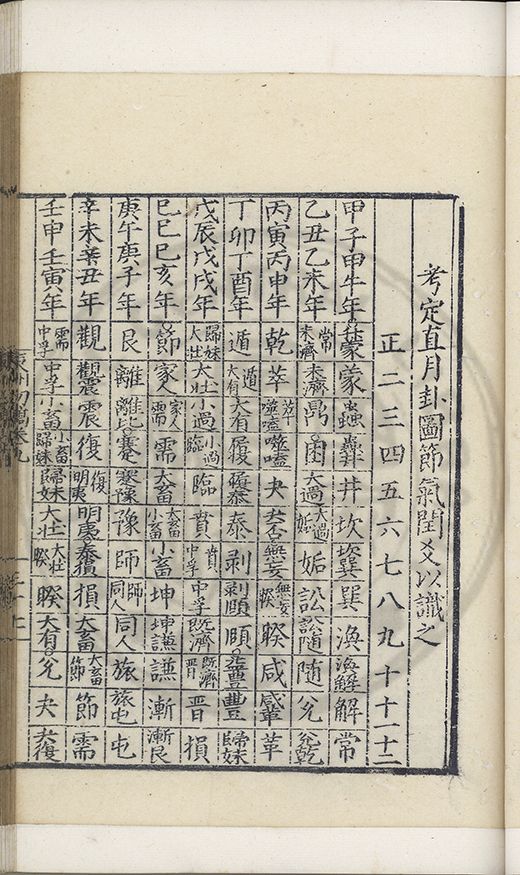 考定直月卦圖節氣閏爻以識之
正二三四五六七八九十十一十二
甲子甲午年蒙蒙蠱井坎坎巽巽渙渙解解常
乙丑乙未年常未濟未濟困大過大過姤姤訟訟隨隨兌兌乾
丙寅丙申年乾萃萃噬嗑噬嗑夬夬否無妄無妄睽睽咸咸革革
丁卯丁酉年遁遁大有大有履履泰泰剥剥頤頤豐歸妹
戊辰戊戌年歸妹大壯大壯小過小過臨臨賁賁中孚中孚既濟既濟晉晉損
己巳己亥年節家人需需大畜大畜小畜小畜坤坤謙謙漸漸艮
庚午庚子年艮離離比蹇蹇豫豫師師同人同人旅旅屯屯
辛未辛丑年觀觀震震復復明夷明夷損損大畜大畜節節需
壬申壬寅年需中孚中孚小畜小畜歸妹歸妹大壯大壯睽睽大有兌夬夬復